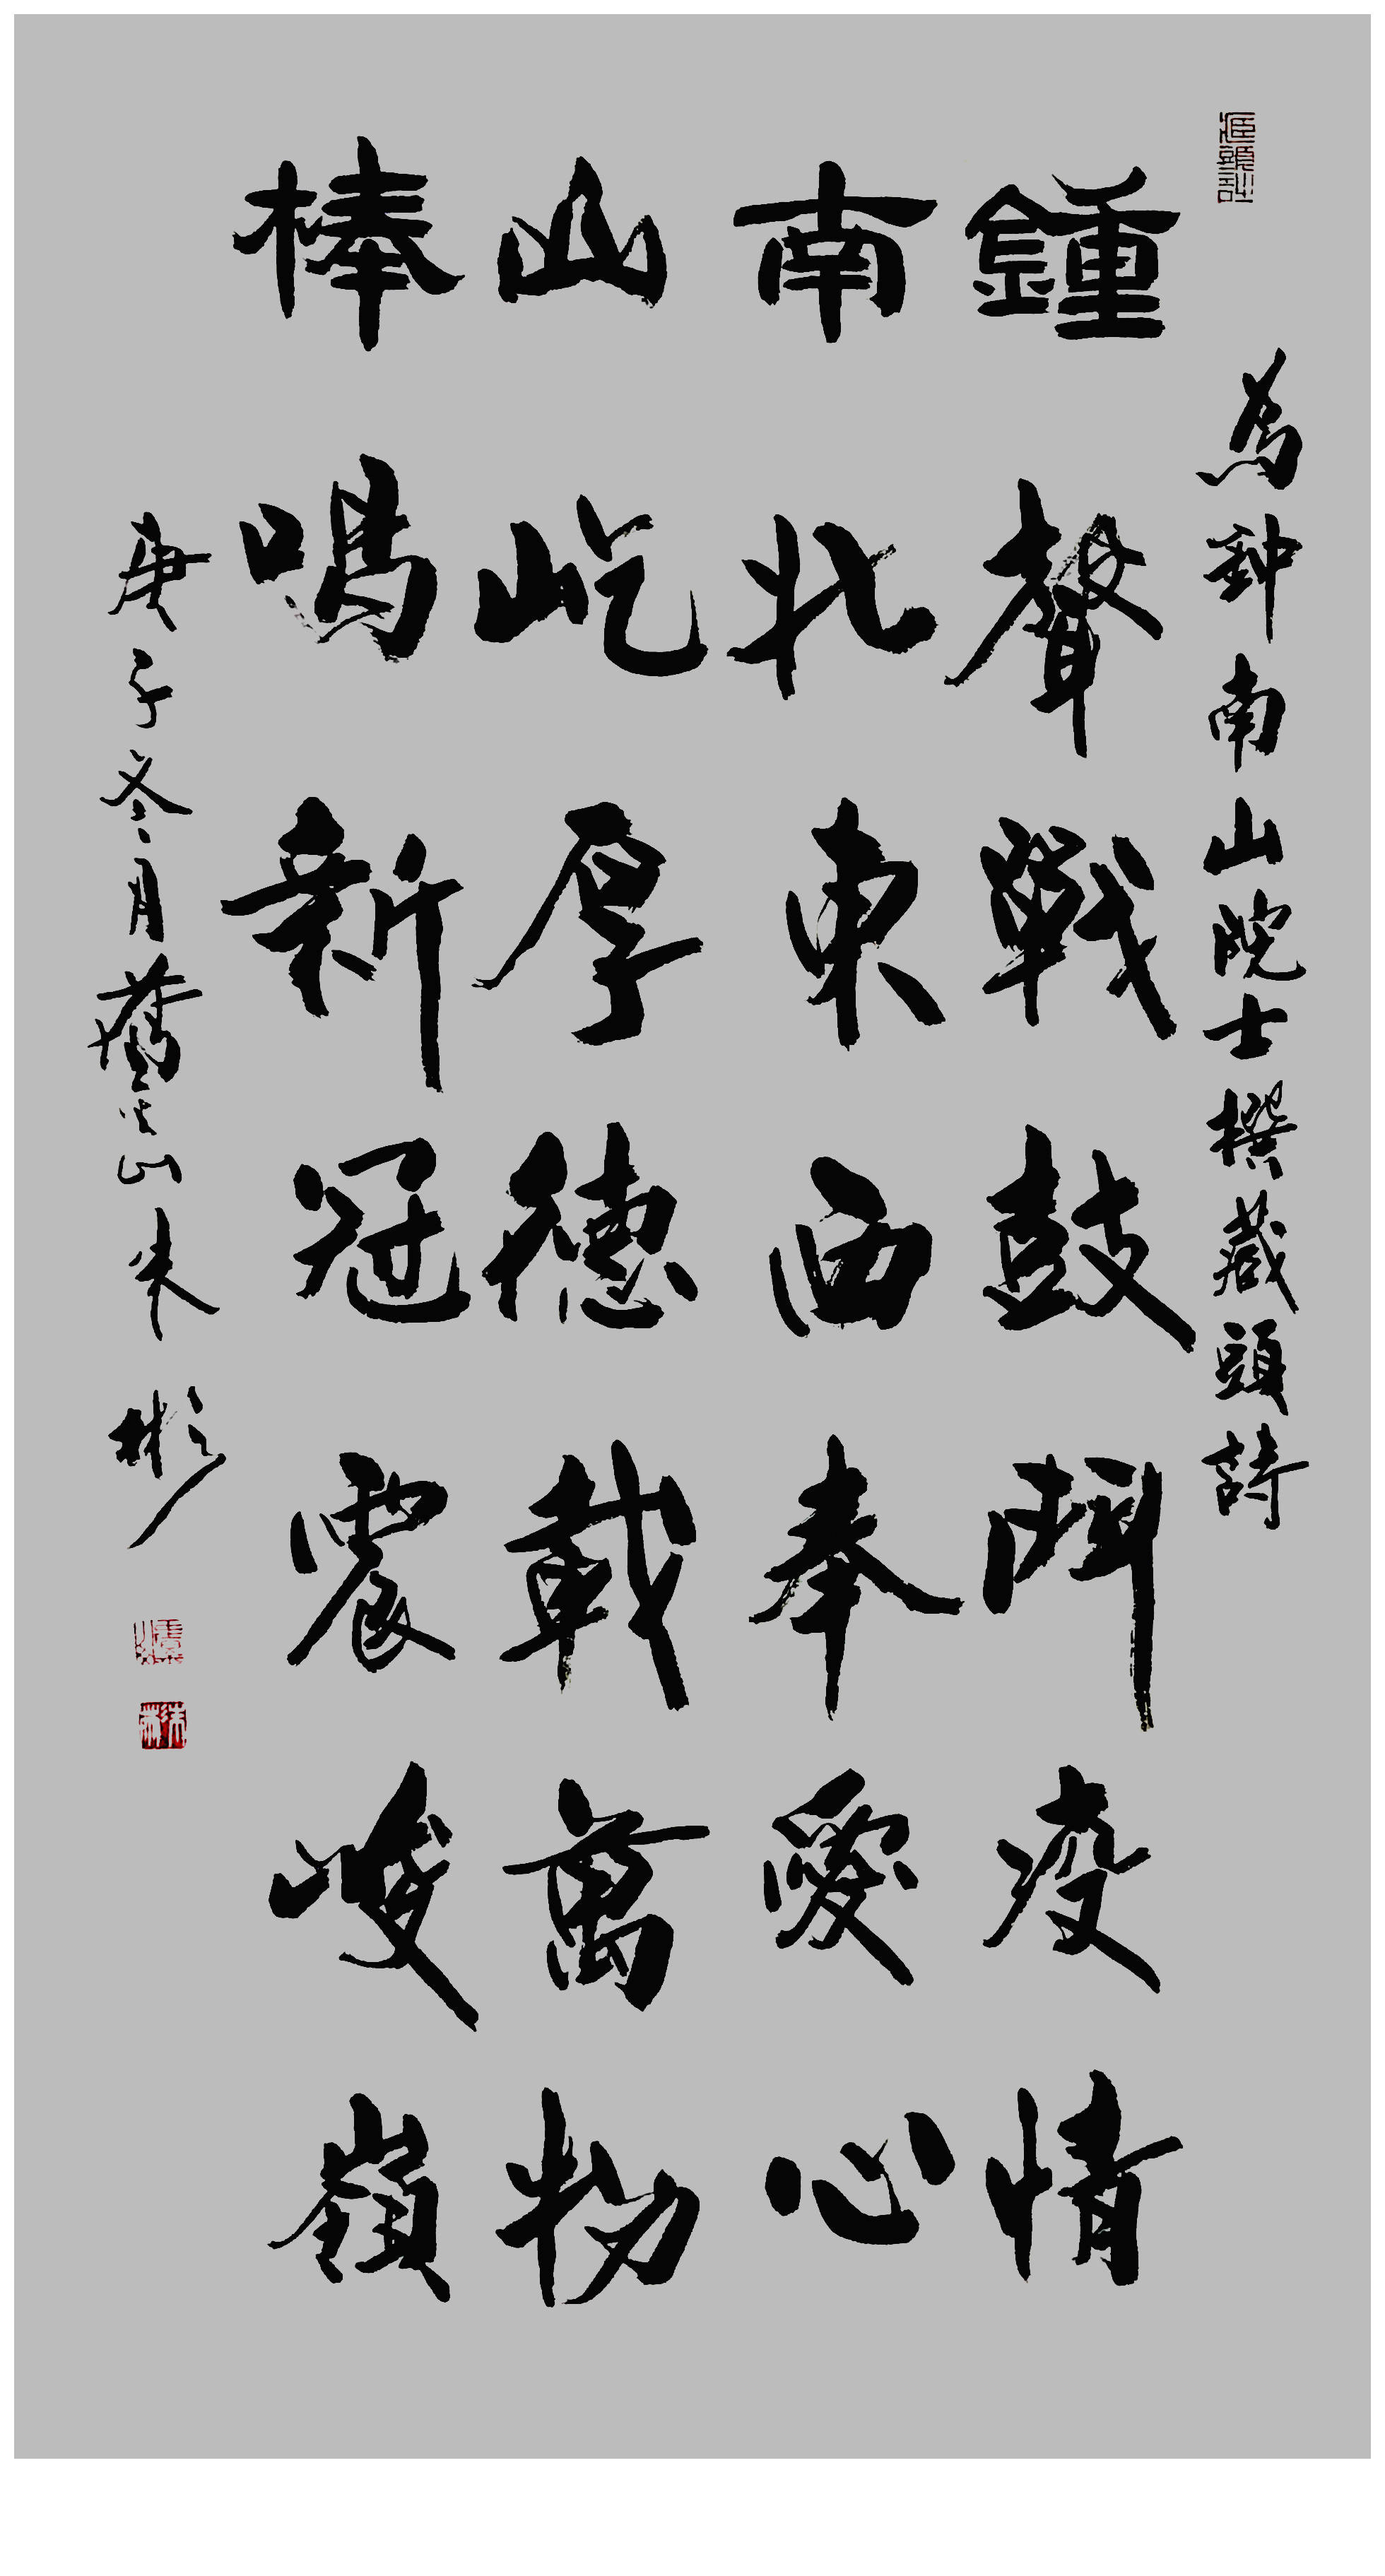 藏頭詩
為鈡南山院士撰藏頭詩
鍾聲戰鼓鬥疫情
南北東西奉愛心
山屹厚德載萬物
棒鳴新冠震峻嶺
庚子冬月舊雲山朱彬